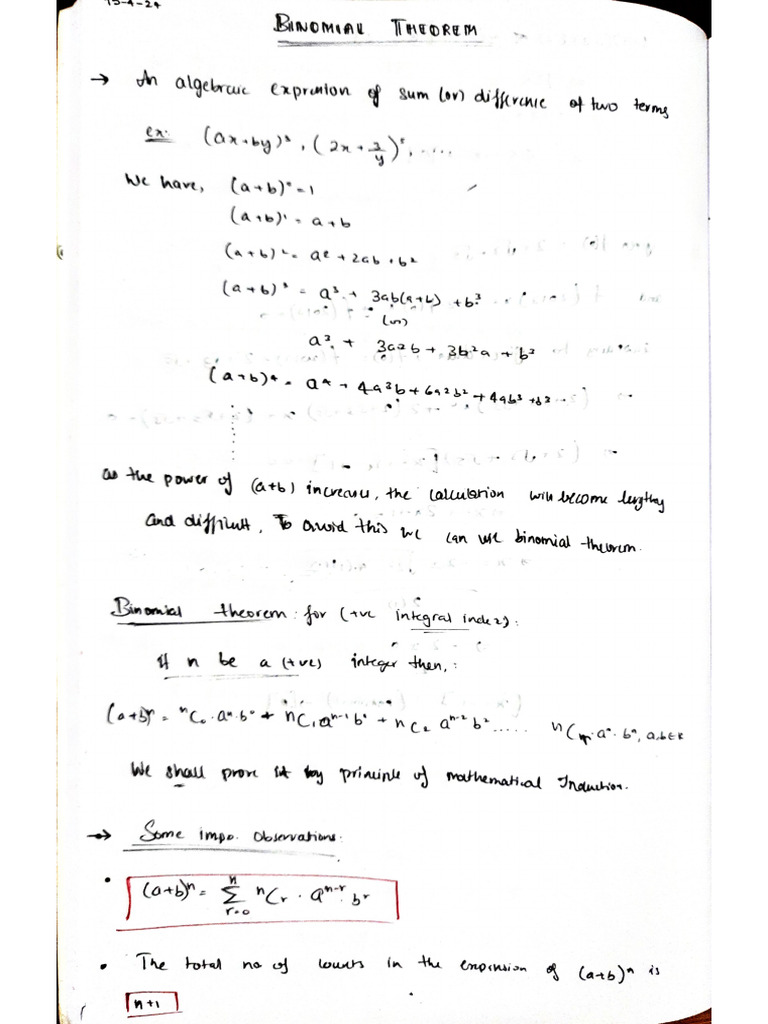 15-4-24
BINOMIAL THEOREM
→ An algebraic expression of sum (or) difference of two terms
ex: (ax+by)³, (2x + 3/y)⁵, ....
We have, (a+b)⁰ = 1
(a+b)¹ = a+b
(a+b)² = a² + 2ab + b²
(a+b)³ = a³ + 3ab(a+b) + b³
(or)
a³ + 3a²b + 3b²a + b³
(a+b)⁴ = a⁴ + 4a³b + 6a²b² + 4ab³ + b³ ...
as the power of (a+b) increases, the calculation will become lengthy
and difficult, To avoid this we can use binomial theorem.
Binomial theorem: for (+ve integral index):
If n be a (+ve) integer then,:
(a+b)ⁿ = ⁿC₀·aⁿ·b⁰ + nC₁aⁿ⁻¹b¹ + nC₂ aⁿ⁻²b² ..... nCₙ·a⁰·bⁿ, a,b∈R
We shall prove it by principle of mathematical Induction.
→ Some impo. observations:
• (a+b)ⁿ = n Σ r=0 ⁿCᵣ · aⁿ⁻ʳ bʳ
• The total no of in the expansion of (a+b)ⁿ is
n+1